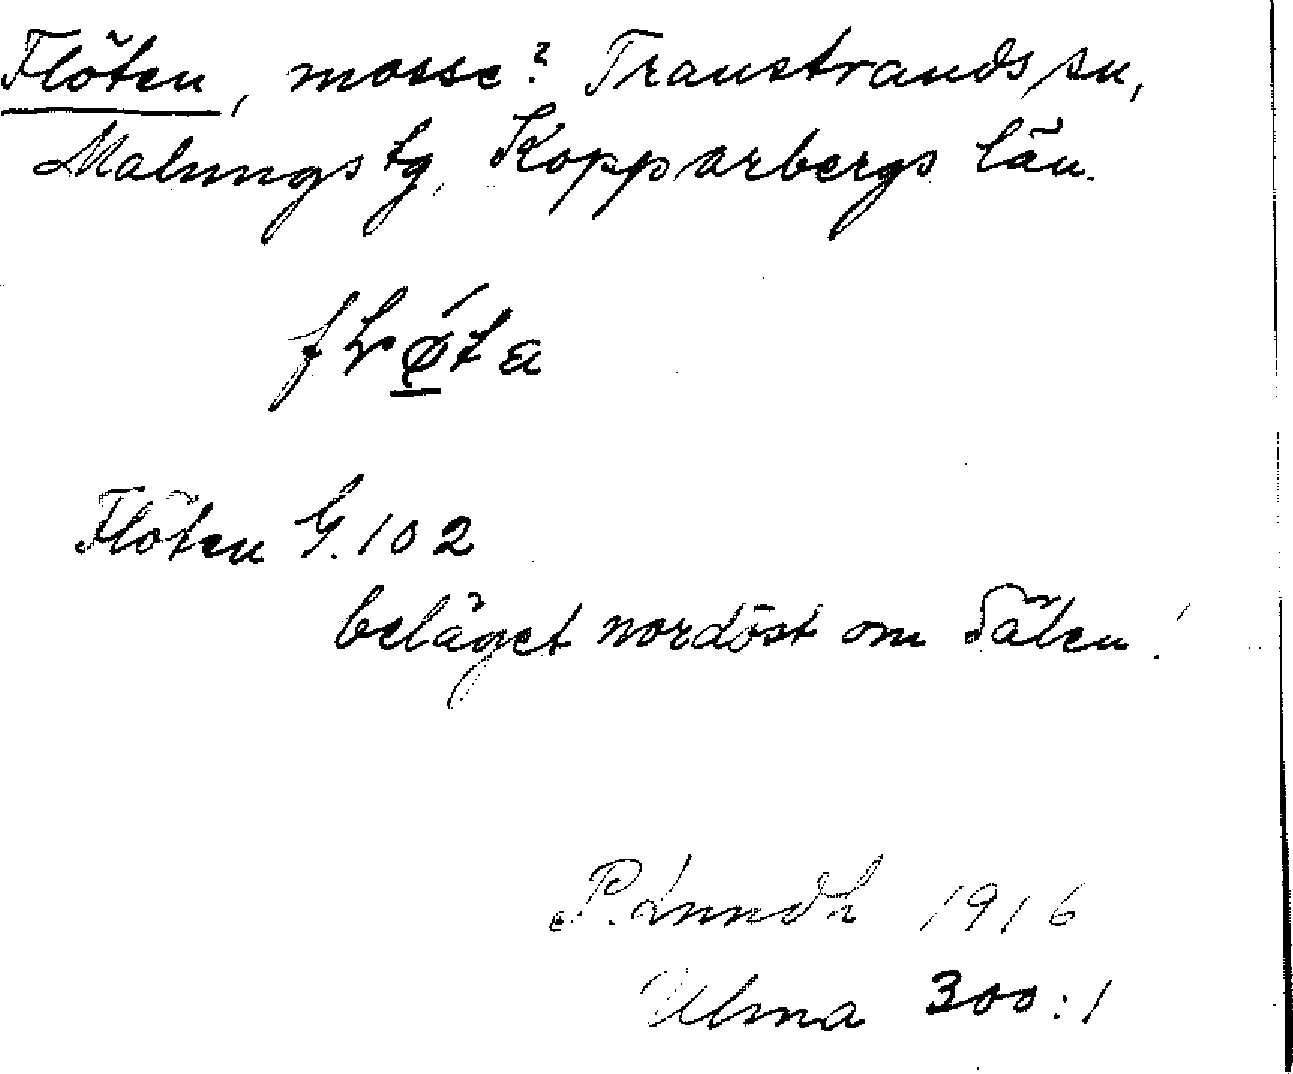 Flöten, mosse? Transtrands sn,
Malungs tg, Kopparbergs län.
Flöten G. 102
beläget nordöst om Säten!
P. Linndh 1916
Ulma 300:1